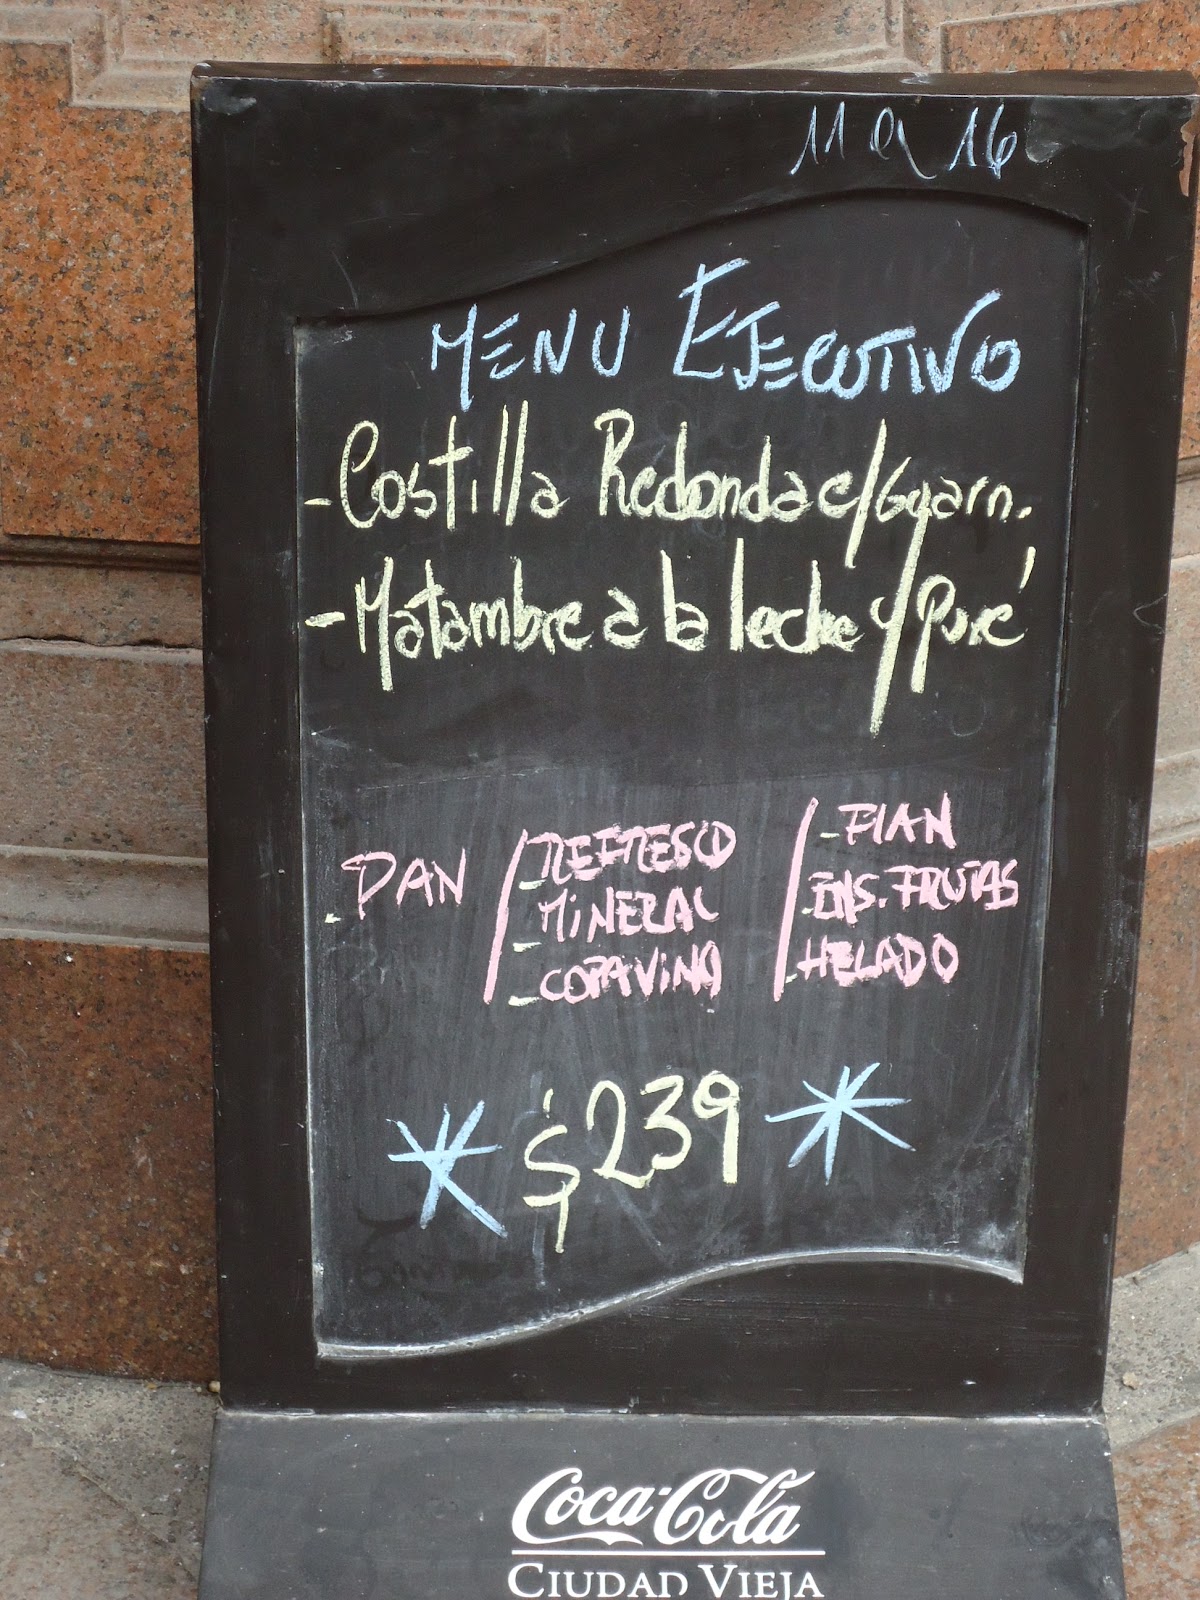 11 a 16
MENU EJECUTIVO
- Costilla Redonda c/Guarn.
- Matambre a la leche y/Puré
- PAN
- REFRESCO
- MINERAL
- COPA VINO
- FLAN
- ENS. FRUTAS
- HELADO
$239
Coca-Cola
CIUDAD VIEJA